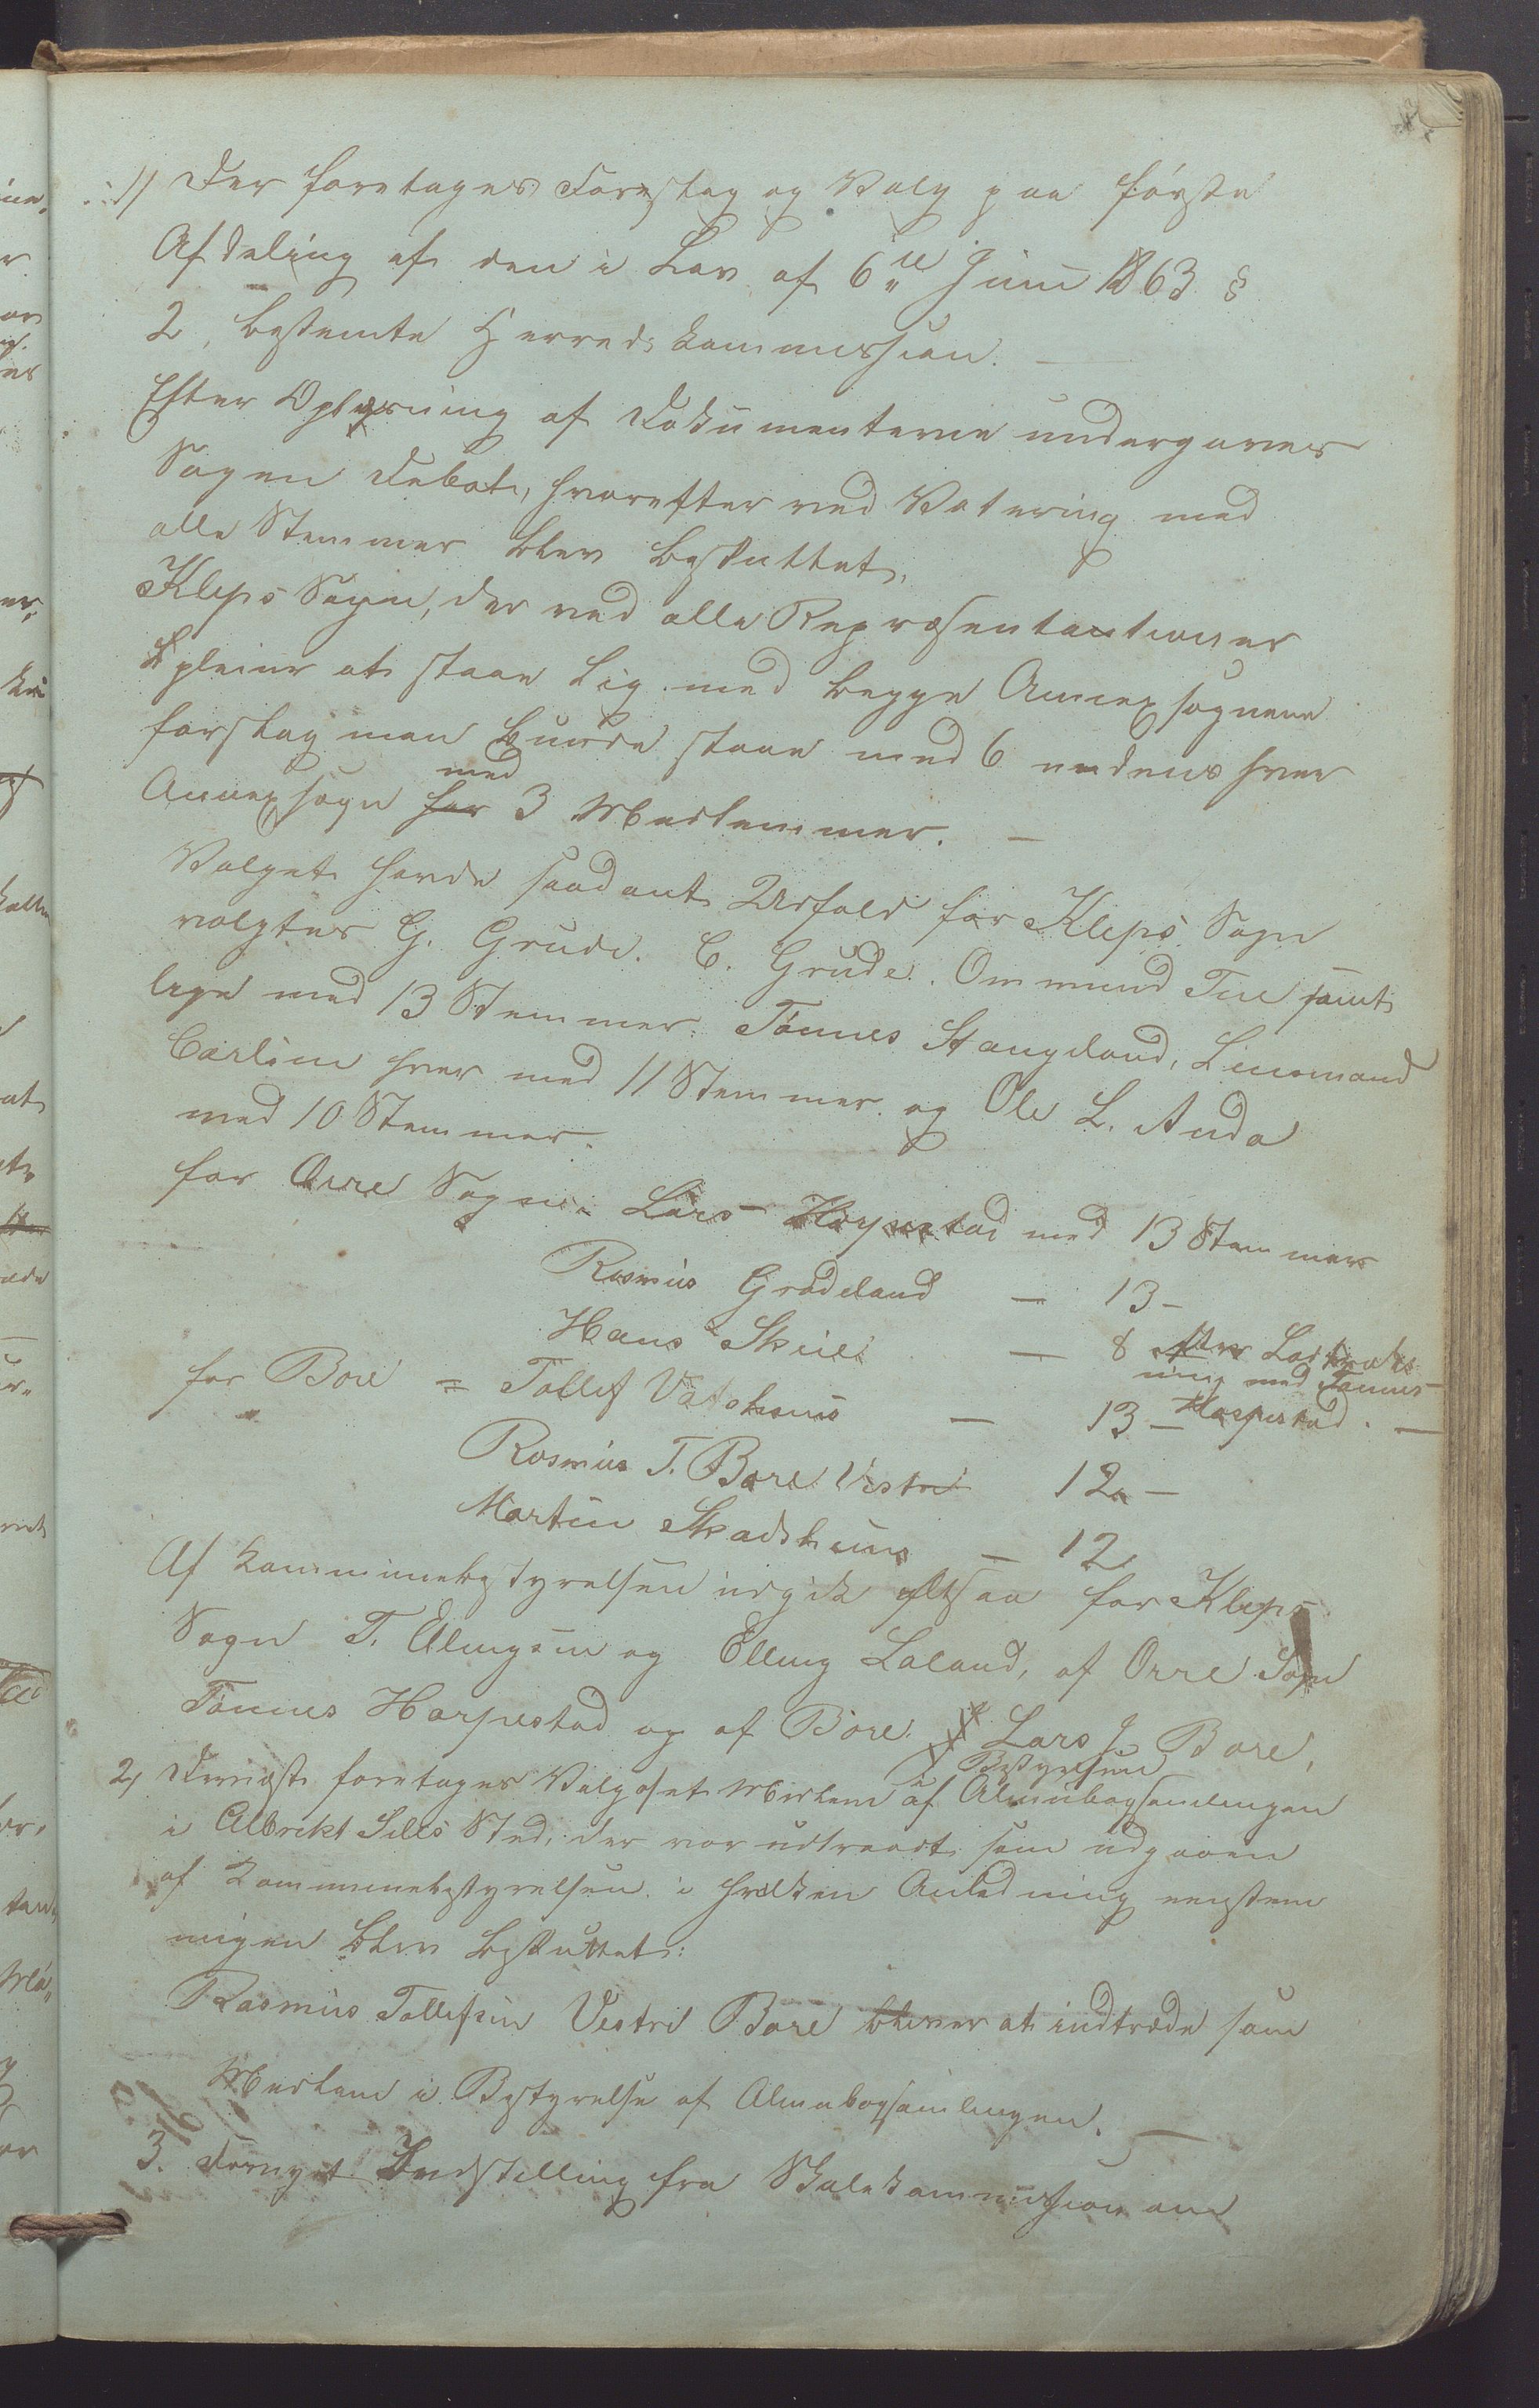 1/ Der foretages Foreslag og Valg paa første
Afdeling af den i Lov af 6te Juni 1863 §
2, bestemte Herredskommission. —
Efter Oplæsning af Dokumenterne undergaves
Sagen Debat, hvorefter ved Votering med
alle Stemmer blev besluttet,
Kleps Sogn, der ved alle Repræsentantioner
pleier at staae Lig med begge Annexsognene
forslag man burde staae med 6 medens hver
med
Annexsogn for 3 Medlemmer. —
Valget havde saadant Udfald for Kleps Sogn
valgtes G. Grude. C. Grude. Ommund Tue samt
lige med 13 Stemmer. Tønnes Stangeland, Linsmand
Carlsen hver med 11 Stemmer og Ole L. Anda
med 10 Stemmer.
for Orre Sogn: Lars Harpestad med 13 Stemmer
Rasmus Grødeland — 13 —
Hans Skeie — 8 efter Lodtræk
ning med Tønnes
Harpestad. —
for Bore = Tollef Vatshuus — 13 —
Rasmus T. Bore Vestre 12 —
Martin Skadsheim — 12
Af Kommunebestyrelsen udgik altsaa for Kleps
Sogn T. Elingsen og Elling Laland, af Orre Sogn
Tønnes Harpestad og af Bore Lars J Bore,
i Bestyrelsen
2, Dernæst foretages Valg af et Medlem af Almuebogsamlingen
i Albrikt Seles Sted, der var udtraadt som udgaaen
af Kommunebestyrelsen, i hvilken Anledning eenstem
migen blev besluttet:
Rasmus Tollefsen Vestre Bore bliver at indtræde som
Medlem i Bestyrelse af Almubogsamlingen. —
3. Fornyet Indstilling fra Skolekommission om